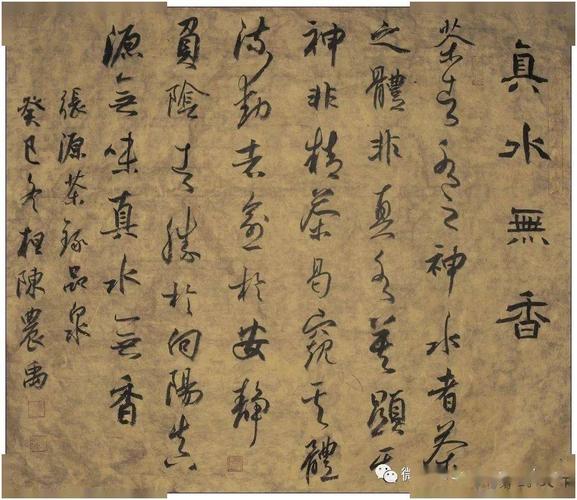 真水無香
茶者水之神水者茶
之體非真水莫顯其
神非精茶曷窺其體
流動者愈於安靜
負陰者勝於向陽真
源無味真水無香
張源茶錄品泉
癸巳冬桓陳農禹
微